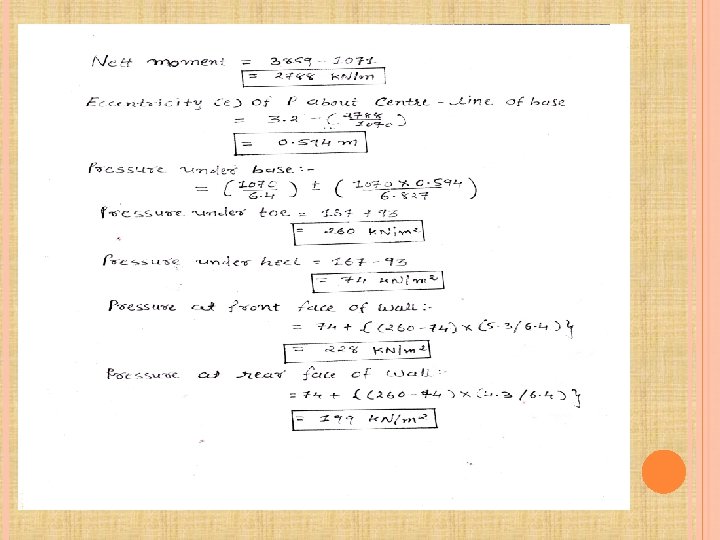 Nett moment = 3859 - 1071
= 2788 KN/m
Eccentricity (e) of P about Centre-line of base
= 3.2 - (2788/1070)
= 0.594 m
Pressure under base:-
= (1070/6.4) ± (1070 x 0.594/6.827)
Pressure under toe = 167 + 93
= 260 KN/m²
Pressure under heel = 167 - 93
= 74 KN/m²
Pressure at front face of wall:-
= 74 + {(260-74) x (5.3/6.4)}
= 228 KN/m²
Pressure at rear face of wall:-
= 74 + {(260-74) x (4.3/6.4)}
= 199 KN/m²